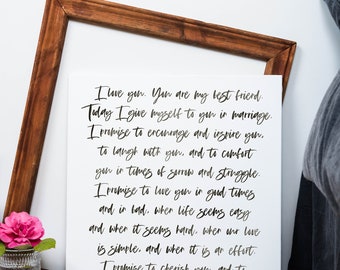 I love you. You are my best friend.
Today I give myself to you in marriage.
I promise to encourage and inspire you,
to laugh with you, and to comfort
you in times of sorrow and struggle.
I promise to love you in good times
and in bad, when life seems easy
and when it seems hard, when our love
is simple, and when it is an effort.
I promise to cherish you, and to